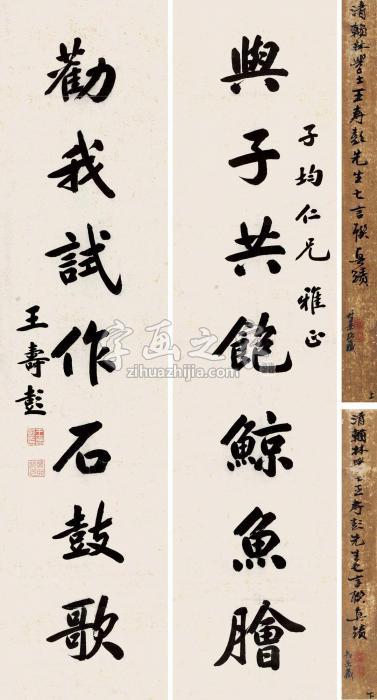 與子共飽鯨魚膾
子均仁兄雅正
勸我試作石鼓歌
王壽彭
清翰林學士王壽彭先生七言聯真蹟
上
清翰林學士王壽彭先生七言聯真蹟
下
字画之家
zihuazhijia.com